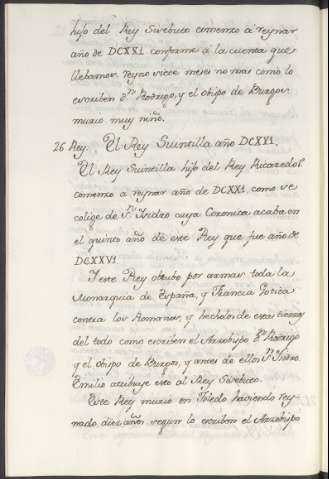 hijo del Rey Sisebuto comenzo à reynar
año de DCXXI. conforme à la cuenta que
llebamos reyno siete meses no mas como lo
escriben Dn. Rodrigo, y el obispo de Burgos
murio muy niño.
26 Rey. El Rey Suintilla año DCXXI.
El Rey Suintilla hijo del Rey Ricaredo
comenzo à reynar año de DCXXI. como se
colige de Sn. Isidro cuya Coronica acaba en
el quinto año de este Rey que fue año de
DCXXVI.
Y este Rey obtubo por armas toda la
Monarquia de España, y Francia Gotica
contra los Romanos, y hecholos de estas tierras
del todo como escriben el Arzobispo Dn. Rodrigo
y el obispo de Burgos, y antes de ellos Sn. Isidro.
Emilio atribuye esto al Rey Sisebuto.
Este Rey murio en Toledo haviendo rey-
nado diez años segun lo escriben el Arzobispo